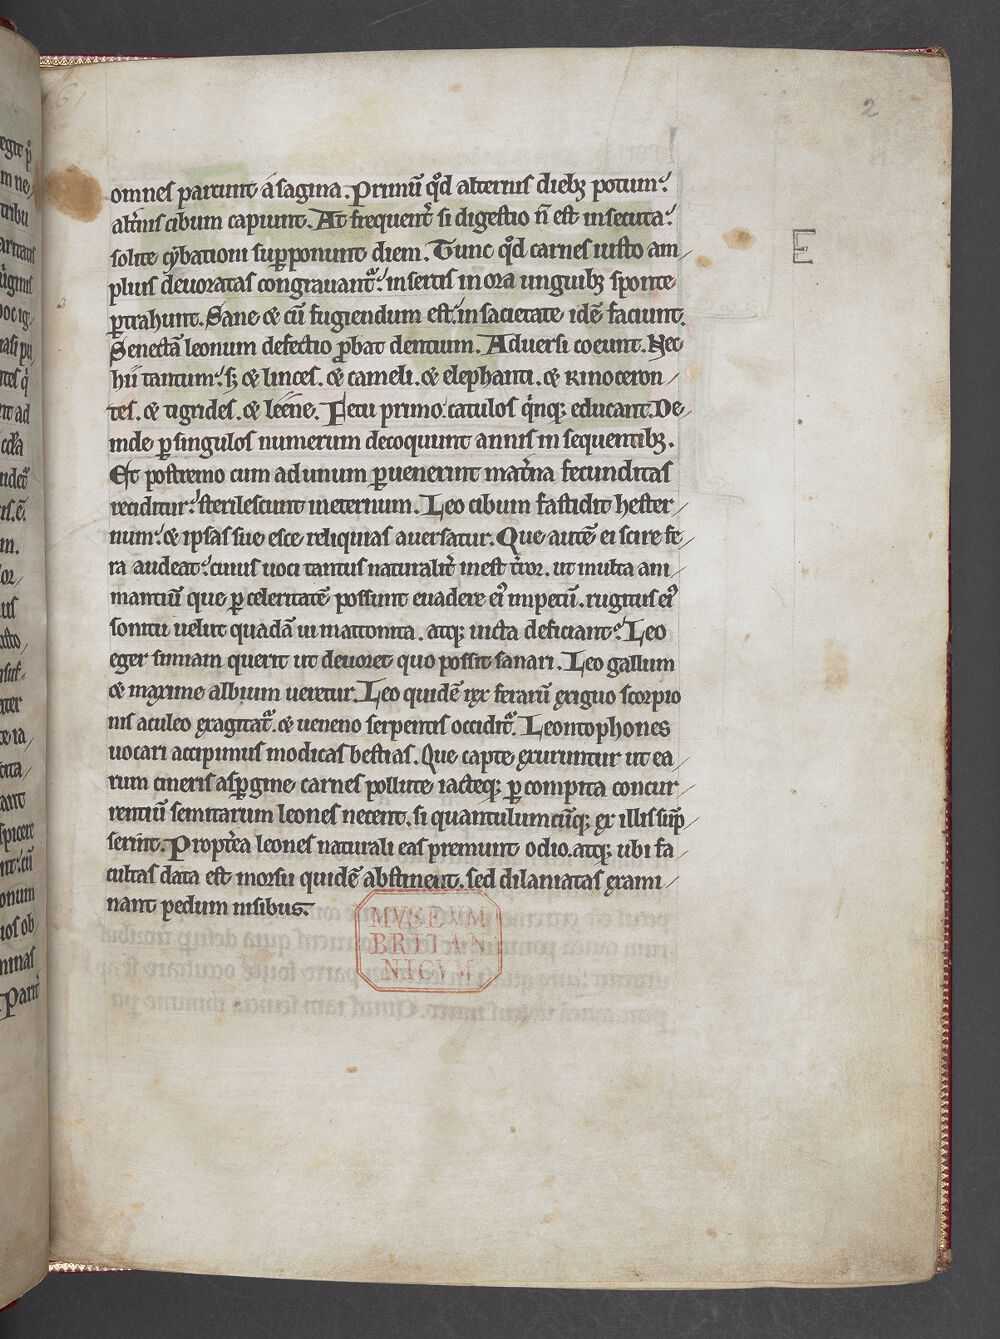 2
E
omnes partiunt a sagina. Primū qͦd alternis diebꝫ potum:
alt̃nis cibum capiunt. At frequent̃ si digestio n̄ est insecuta:
solite cybationi supponunt diem. Tunc qͦd carnes iusto am
plius deuoratas congrauantᷓ: insertis in ora unguibꝫ sponte
ꝑtrahunt. Sane ⁊ cū fugiendum est: in sacietate idē faciunt.
Senectā leonum defectio ꝓbat dentium. Aduersi coeunt. Nec
hii tantum: sꝫ ⁊ linces. ⁊ cameli. ⁊ elephanti. ⁊ rinoceron
tes. ⁊ tigrides. ⁊ leene. Fetu primo catulos q̇nqꝫ educant. De
inde ꝑ singulos numerum decoquunt annis in sequentibꝫ.
Et postremo cum ad unum ꝑuenerint mat̃na fecunditas
reciditur: sterilescunt ineternum. Leo cibum fastidit hester
num: ⁊ ipsas sue esce reliquias auersatur. Que autē ei se ire fe
ra audeat: cuius uoci tantus naturalit̃ inest t̃ror. ut multa ani
mantiū que ꝑ celeritatē possunt euadere eiꝰ impetū. rugitus eiꝰ
sonitu uelut quadā ui inattonita. atqꝫ uicta deficiant. Leo
eger simiam querit ut deuoret quo possit sanari. Leo gallum
⁊ maxime album ueretur. Leo quidē rex ferarū exiguo scorpio
nis aculeo exagitatᷓ. ⁊ ueneno serpentis occiditᷓ. Leontophones
uocari accipimus modicas bestias. Que capte exuruntur ut ea
rum cineris aspgine carnes pollute iacteqꝫ ꝑ compita concur
rentiū semitarum leones necent. si quantulumcūqꝫ ex illis sūp
serint. Propt̃ea leones naturali eas premunt odio. atqꝫ ubi fa
cultas data est morsu quidē abstinent. sed dilaniatas exami
nant pedum nisibus.
MVSEVM
BRITAN
NICVM